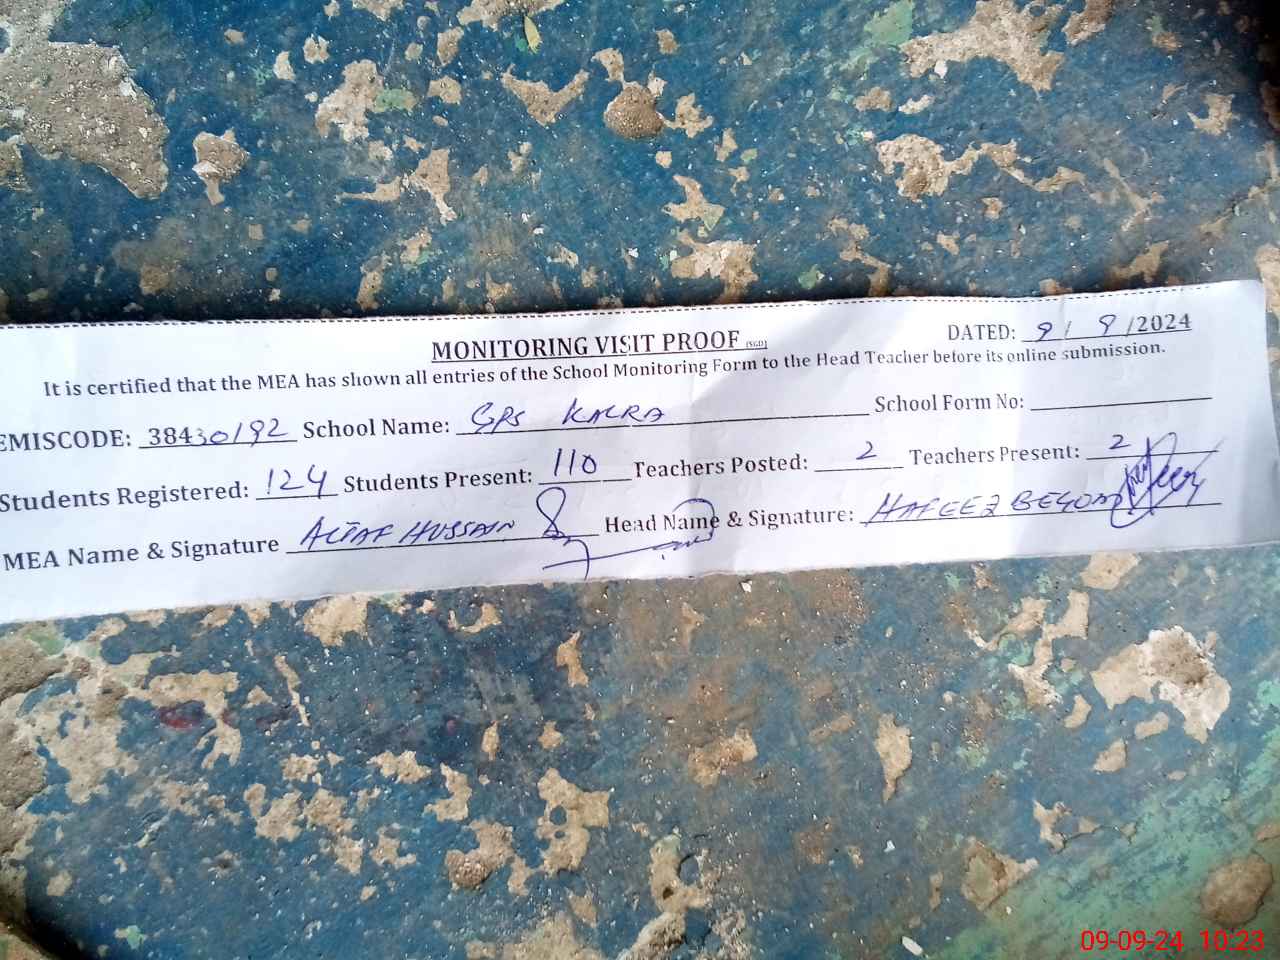 MONITORING VISIT PROOF (SGD) DATED: 9/ 9/2024
It is certified that the MEA has shown all entries of the School Monitoring Form to the Head Teacher before its online submission.
EMISCODE: 38430192 School Name: GPS KALRA School Form No:
Students Registered: 124 Students Present: 110 Teachers Posted: 2 Teachers Present: 2
MEA Name & Signature ALTAF HUSSAIN Head Name & Signature: HAFEEZ BEGUM
09-09-24 10:23